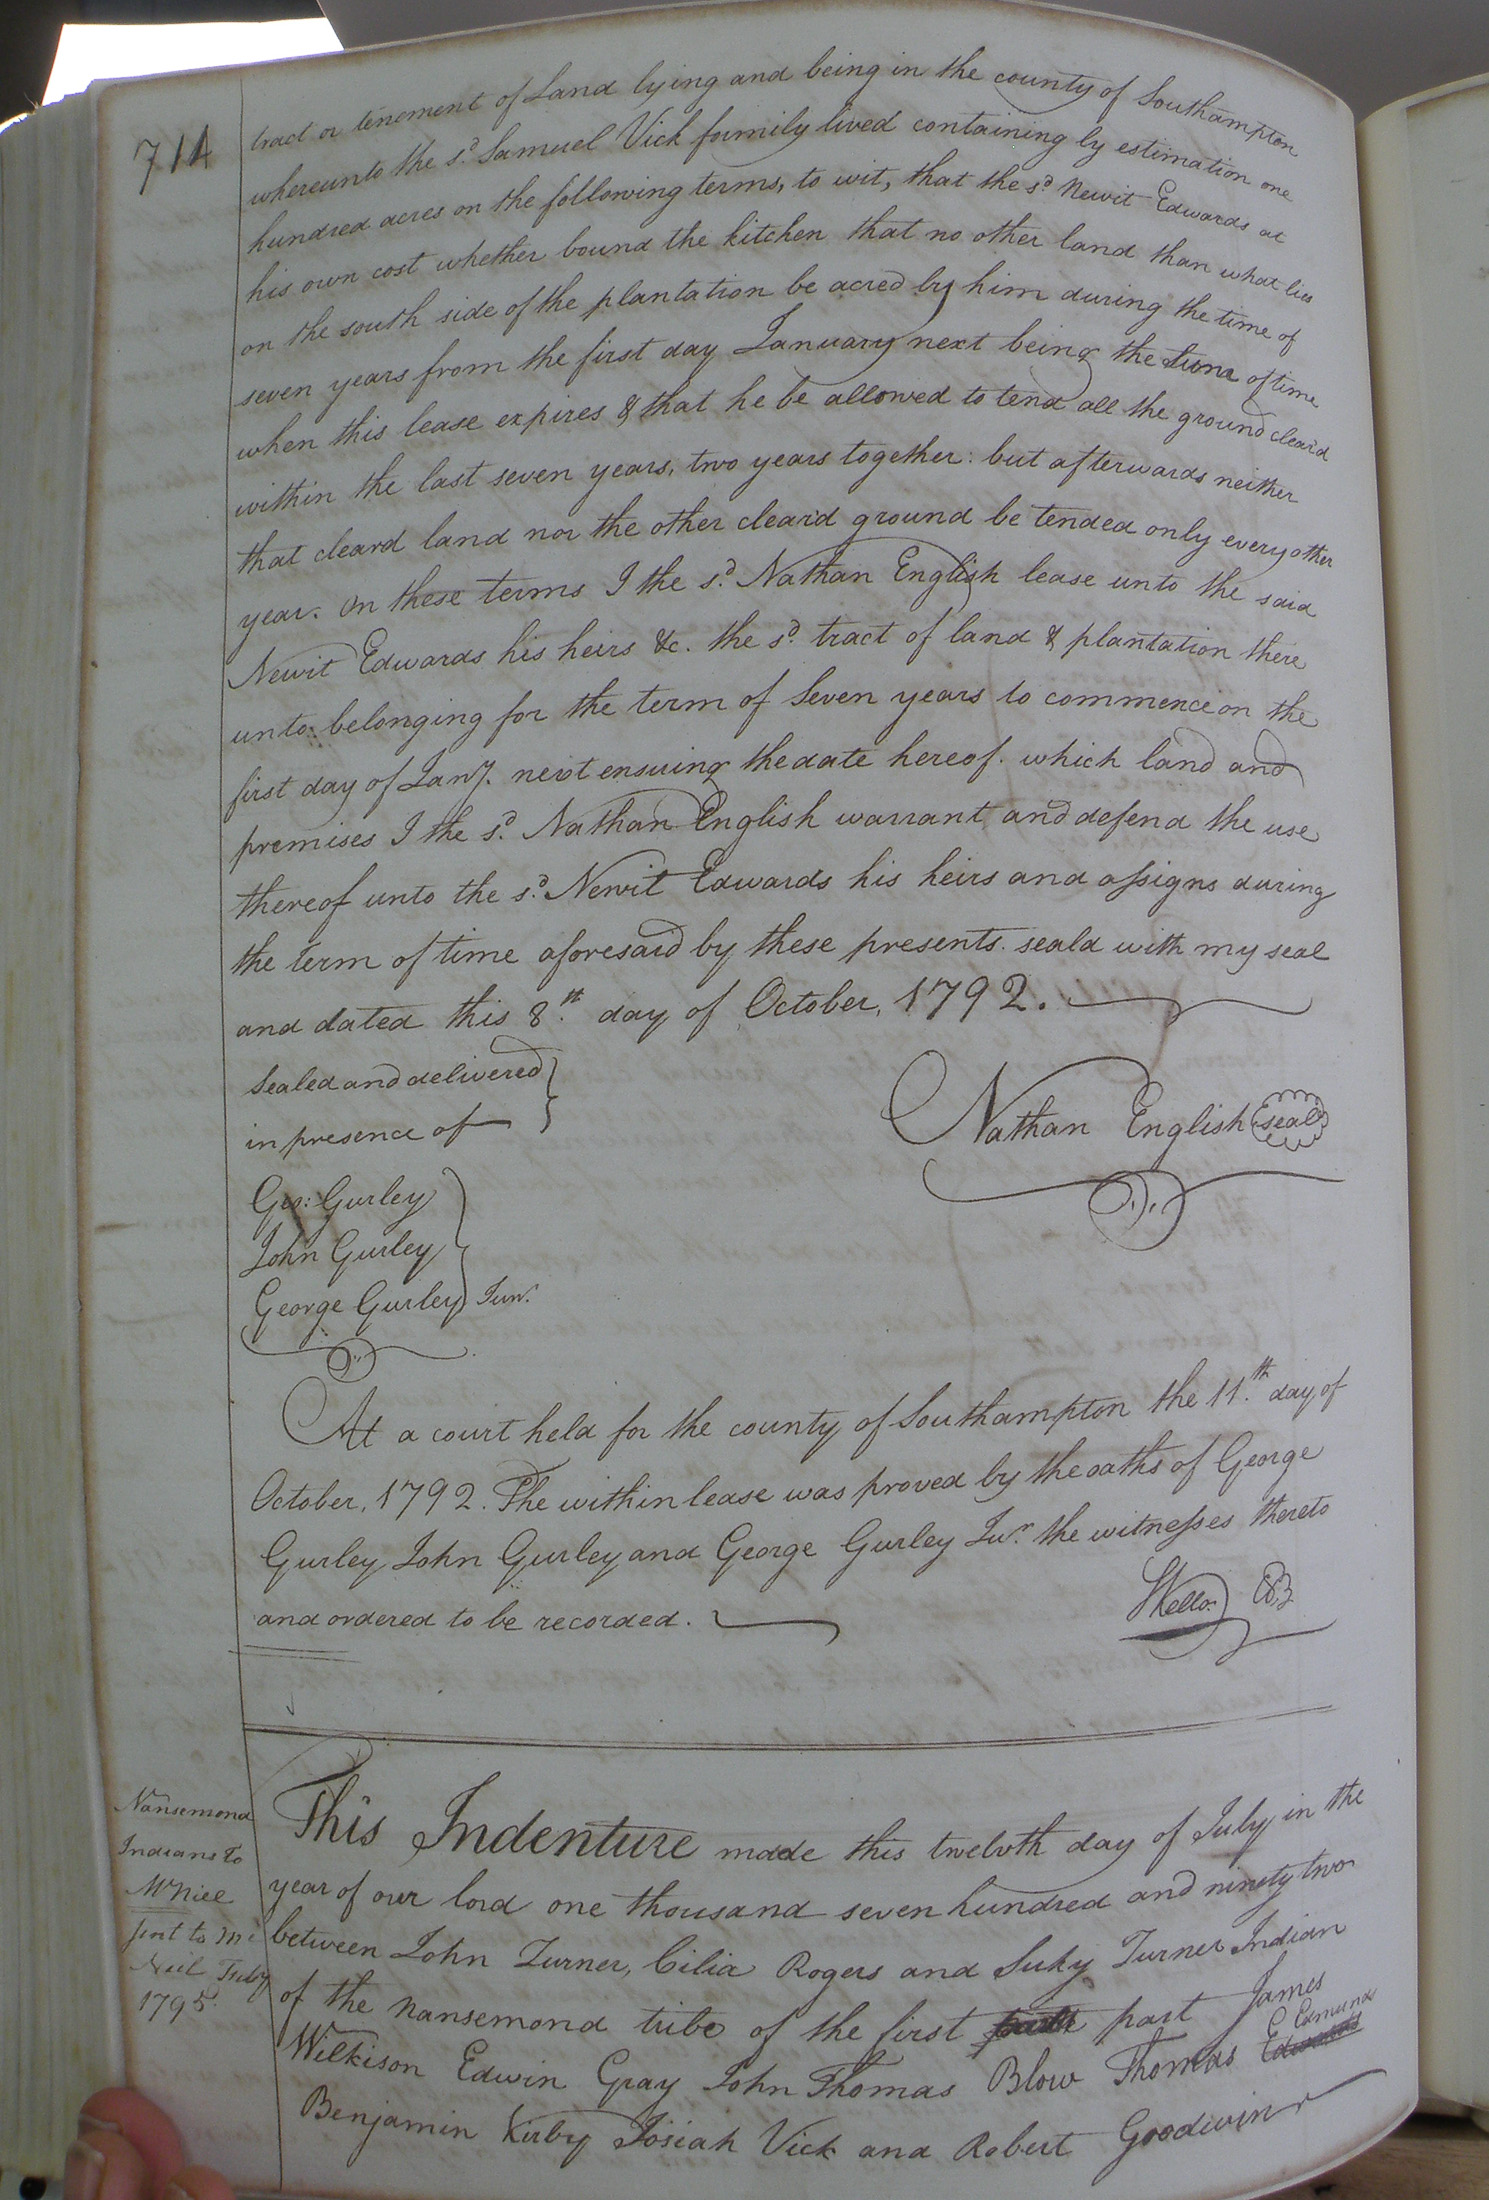 714
tract or tenement of Land lying and being in the county of Southampton
whereunto the sd. Samuel Vick formily lived containing by estimation one
hundred acres on the following terms, to wit, that the sd Newit Edwards at
his own cost whether bound the kitchen that no other land than what lies
on the south side of the plantation be acred by him during the time of
seven years from the first day January next being the time of time
when this lease expires & that he be allowed to tend all the ground clear'd
within the last seven years, two years together: but afterwards neither
that cleard land nor the other clear'd ground be tended only every other
year. On these terms I the sd. Nathan English lease unto the said
Newit Edwards his heirs &c. the sd. tract of land & plantation there
unto belonging for the term of Seven years to commence on the
first day of Jany. next ensuing the date hereof. which land and
premises I the sd. Nathan English warrant and defend the use
thereof unto the sd. Newit Edwards his heirs and assigns during
the term of time aforesaid by these presents. seald with my seal
and dated this 8th. day of October, 1792.
Sealed and delivered
in presence of
Nathan English seal
Geo: Gurley
John Gurley
George Gurley Junr.
At a court held for the county of Southampton the 11th. day of
October, 1792. The within lease was proved by the oaths of George
Gurley John Gurley and George Gurley Jur. the witnesses thereto
and ordered to be recorded.
Nansemond
Indians to
McNiel
sent to Mc
Neil July
1795.
This Indenture made this twelvth day of July in the
year of our lord one thousand seven hundred and ninety two
between John Turner, Cilia Rogers and Suky Turner Indian
of the Nansemond tribe of the first part part James
Wilkison Edwin Gray John Thomas Blow Thomas Edwards Edmunds
Benjamin Kirby Josiah Vick and Robert Goodwin